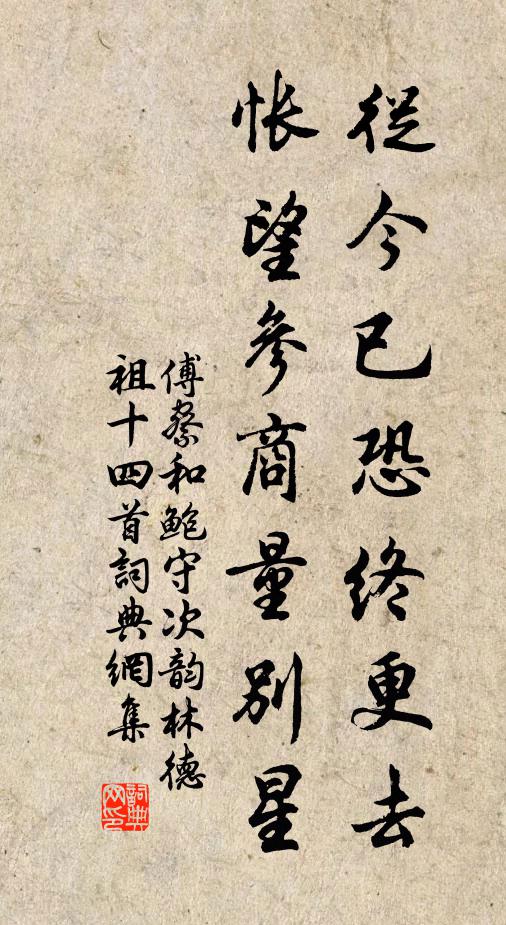 從今已恐終更去
悵望參商量別星
傅察和鮑守次韵林德
祖十四首詞典網集
詞典網印